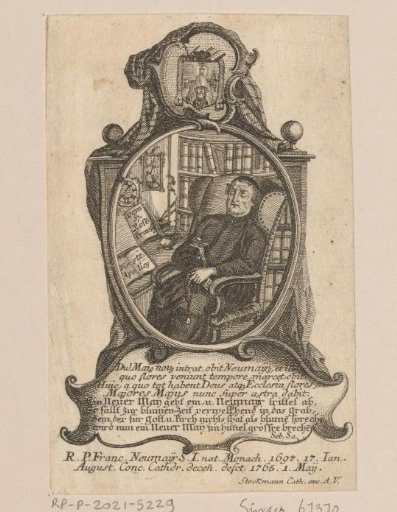 Dul May novus intrat, obit Neumayr, et illo
quo flores veniunt tempore, marcet, obit
Huic, a quo tot habent Deus atq Ecclesia flores,
Majores Manus nunc super astra dabit.
Ein Neuer May geht ein, u. Neumair stirbet ab,
Er fallt zur blumen-Zeit verwelkhend in das grab,
dem der für Gott u. Kirch nichts that als blume spreche
wird nun ein Neuer May im himel grössre breche
Seb. Sa.
R. P. Franc. Neumair S. I. nat. Monach. 1697. 17. Ian.
August. Conc. Cathdr. decen. defct. 1765. 1. May.
Stockmann Cath. exc. A.V.
RP-P-2021-5229